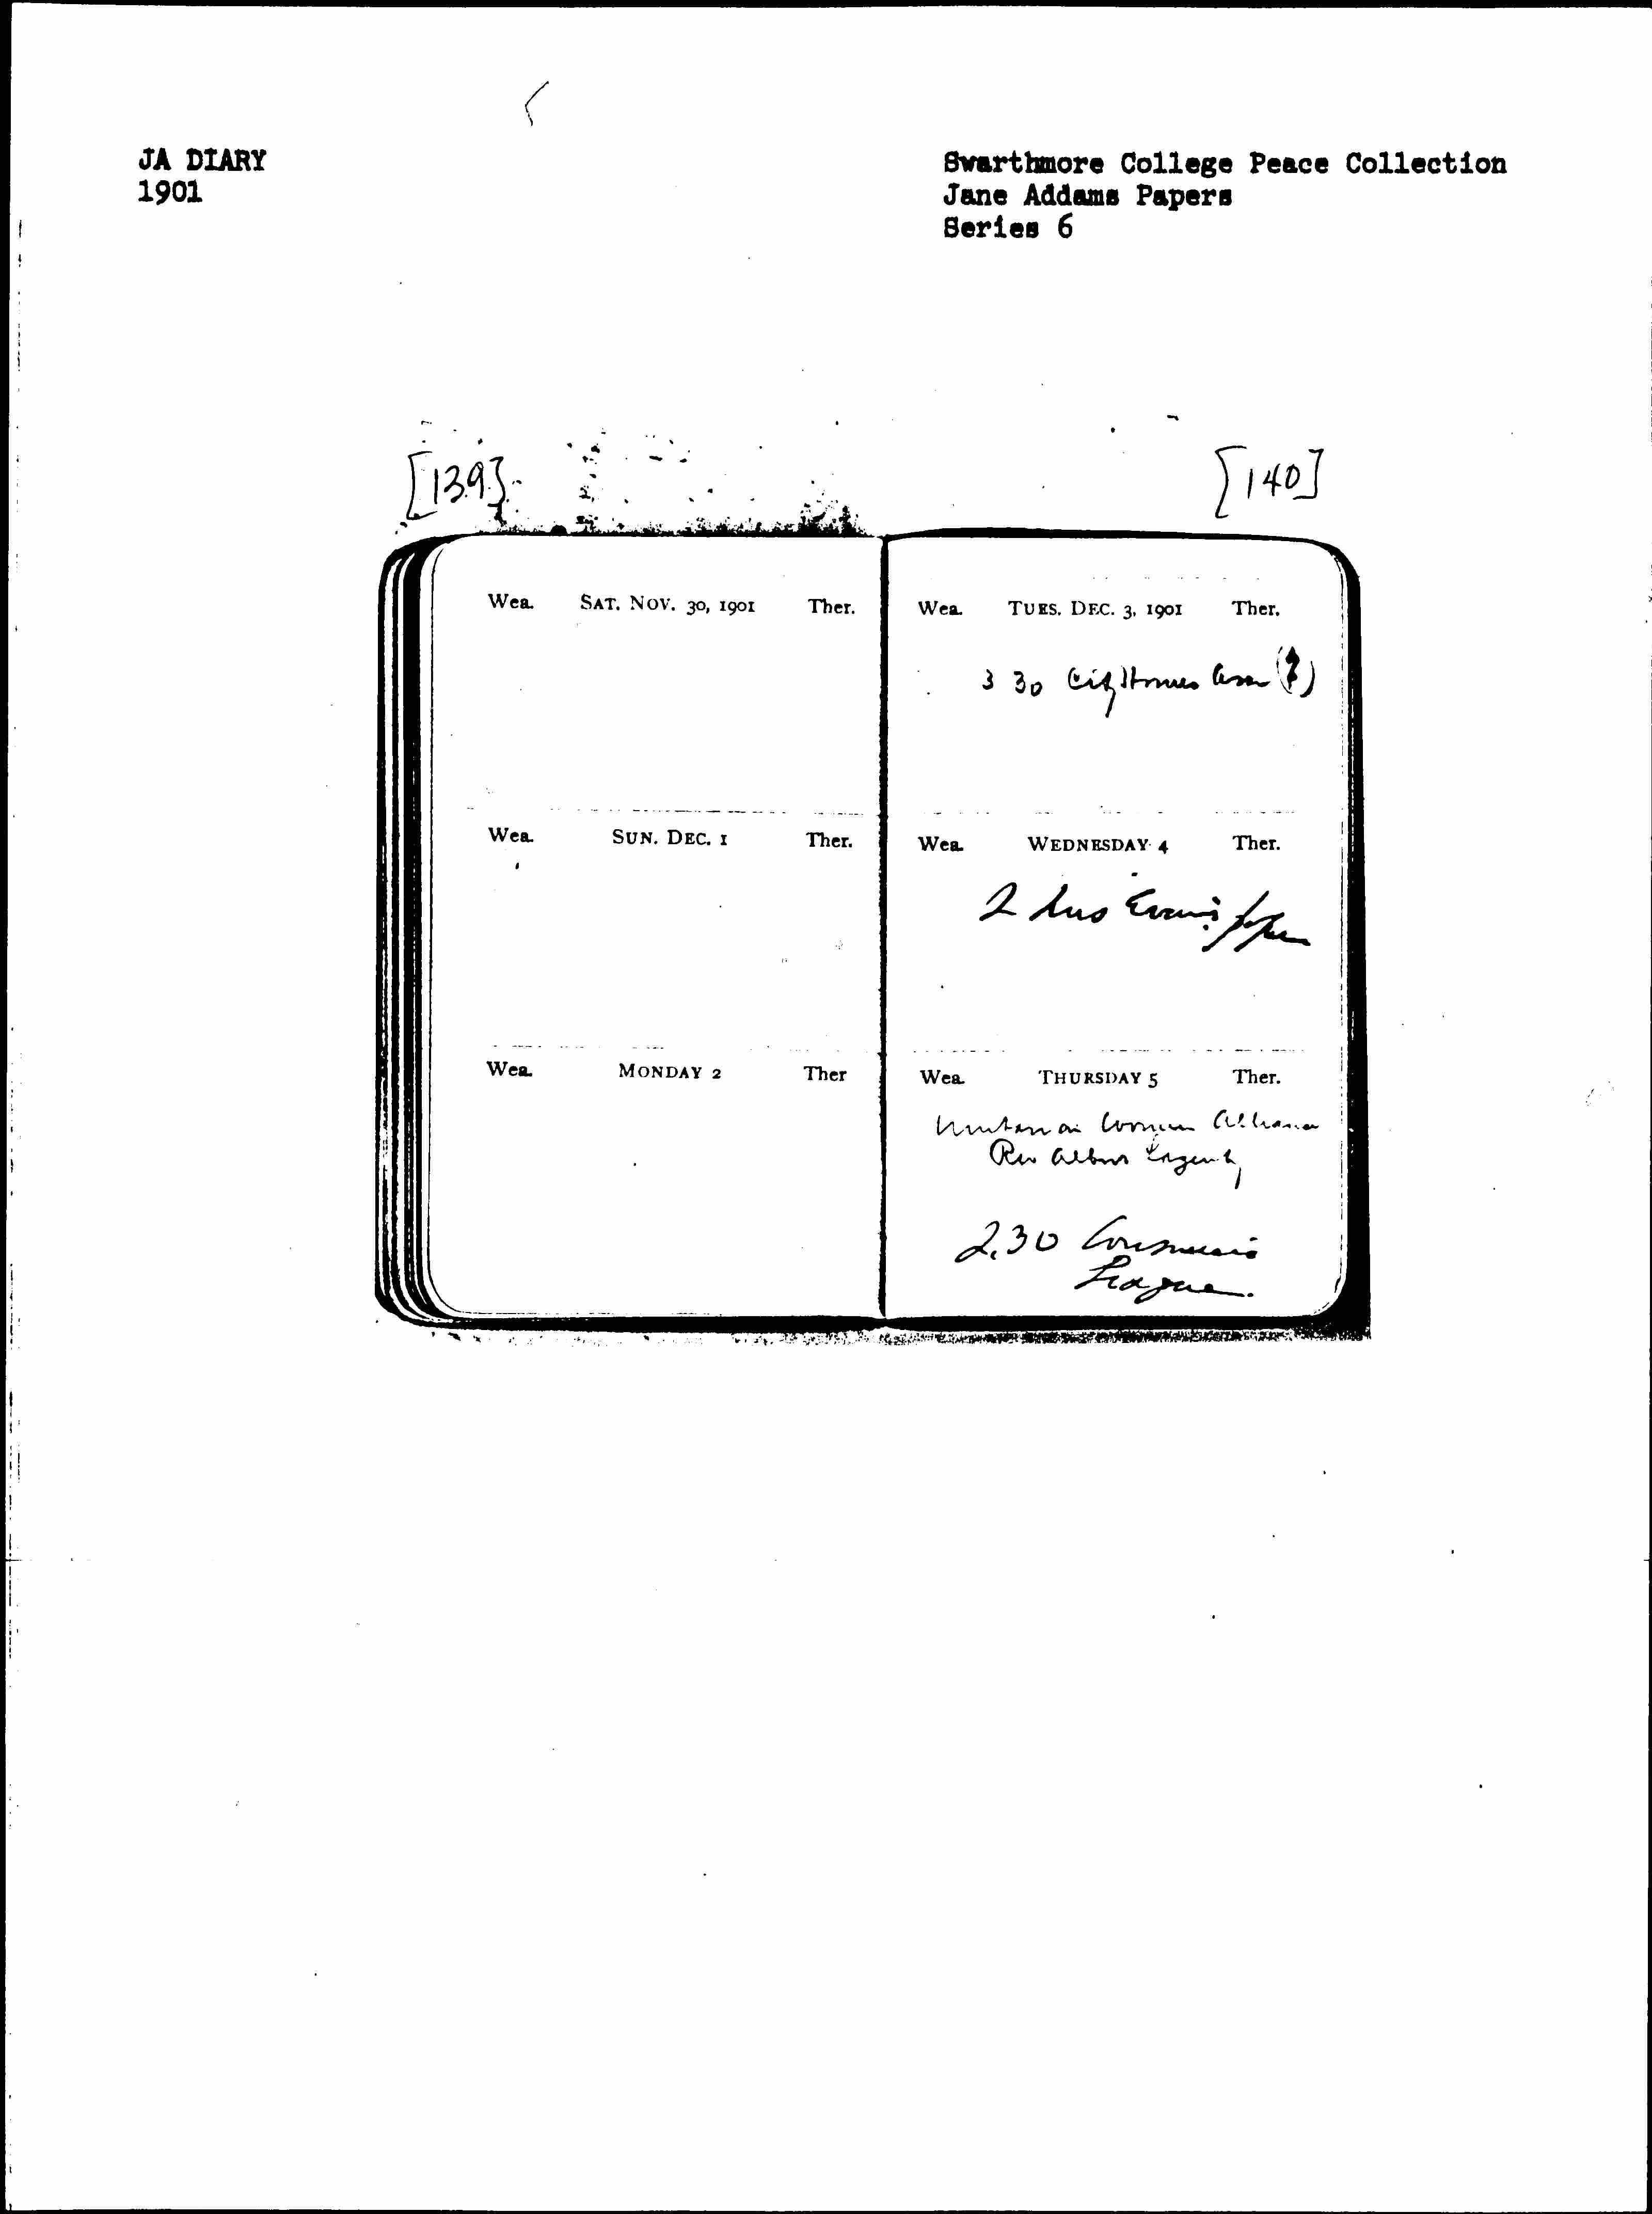 JA DIARY
1901
Swarthmore College Peace Collection
Jane Addams Papers
Series 6
[139]
[140]
Wea. SAT. NOV. 30, 1901 Ther.
Wea. SUN. DEC. 1 Ther.
Wea. MONDAY 2 Ther
Wea. TUES. DEC. 3, 1901 Ther.
3 30 City Homes Assn (?)
Wea. WEDNESDAY 4 Ther.
2 Evans
Wea. THURSDAY 5 Ther.
Unitarian Woman Alliance
Rev
2.30 Consumers
League.